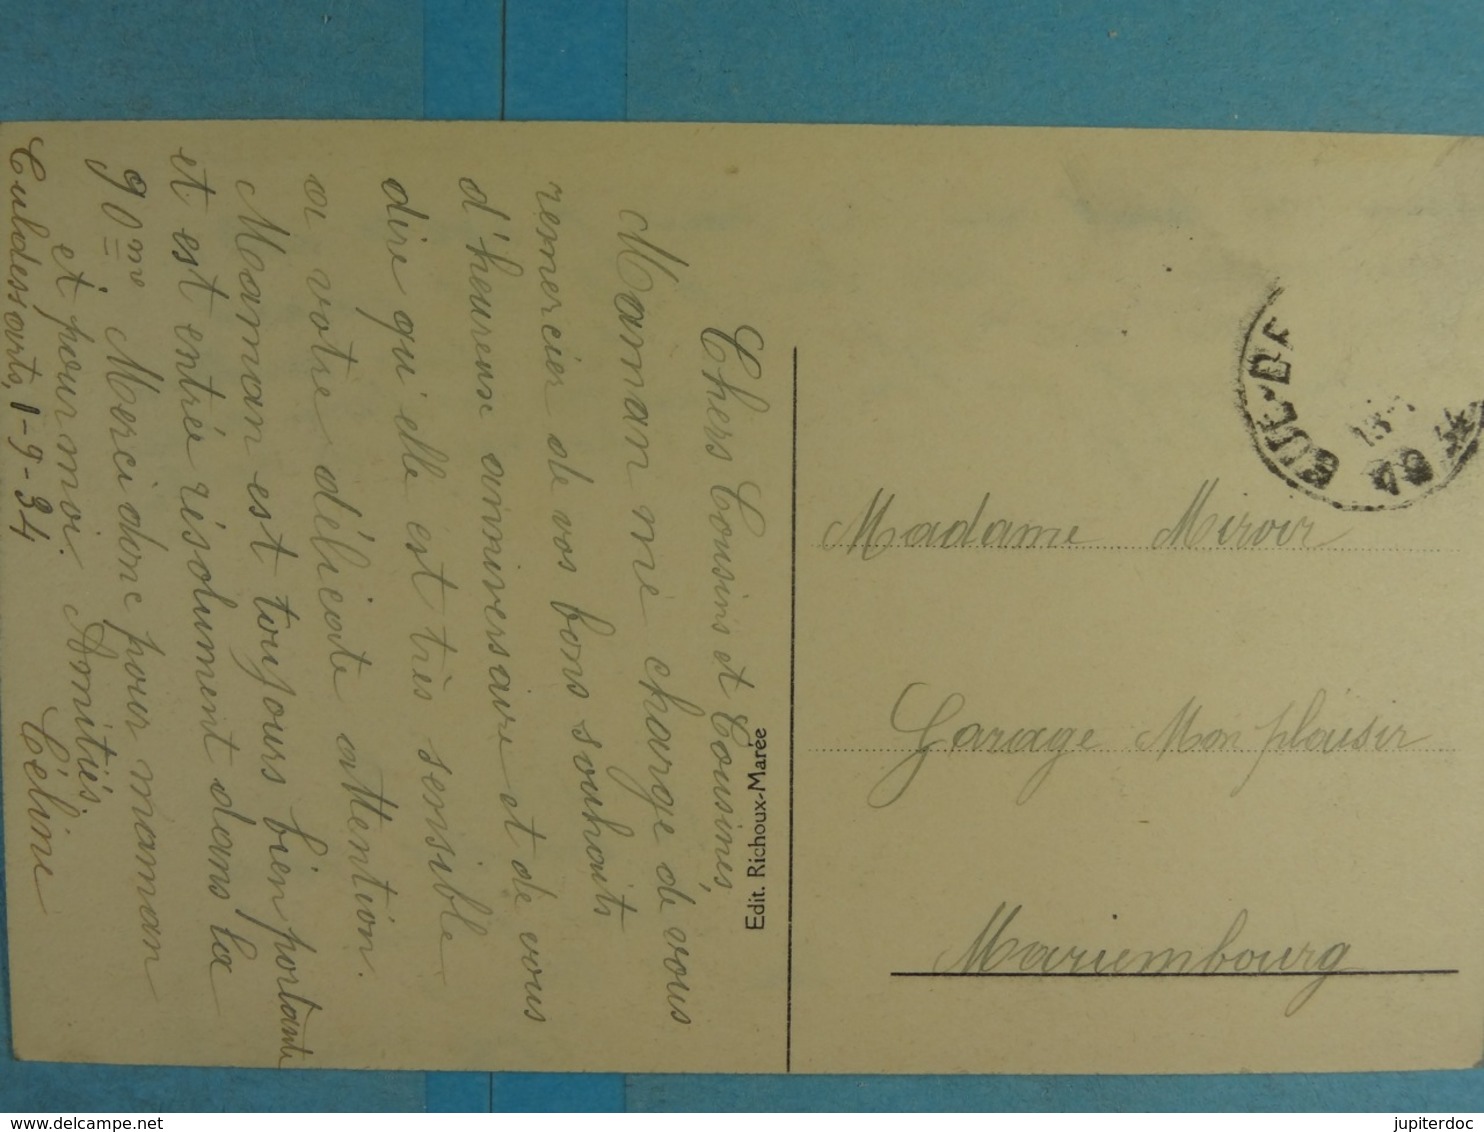 Chers Cousins et Cousines,
Maman me charge de vous
remercier de vos bons souhaits
d'heureux anniversaire et de vous
dire qu'elle est très sensible
a votre délicate attention.
Maman est toujours bien portante
et est entrée résolument dans la
90me Merci donc pour maman
et pour moi. Amitiés
Céline
Culdessarts, 1-9-34
Edit. Richoux-Marée
CUL-DE
34
Madame Miroir
Garage Mon plaisir
Mariembourg
jupiterdoc